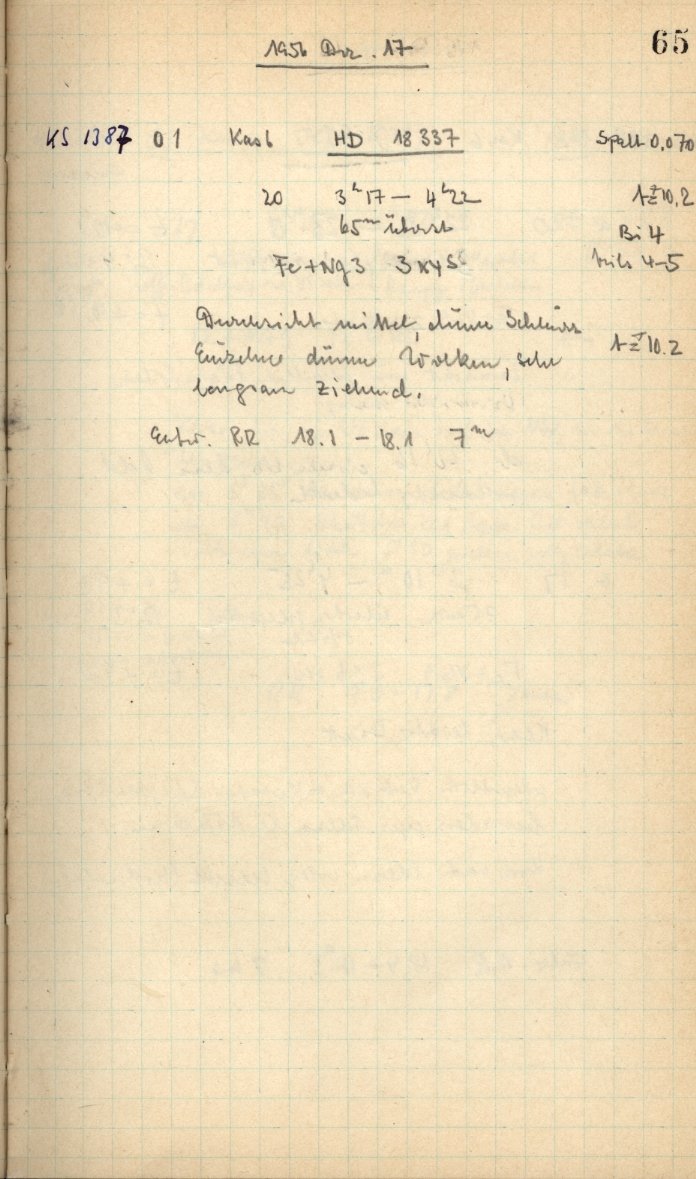 65
1956 Dez. 17
KS 1387 01 Kas6 HD 18337 Spalt 0,070
20 3ʰ17 — 4ʰ22 10,2
65ᵐ Bi 4
Fe+Ng3 3x45ˢ teils 4-5
Durchsicht mittel, dünne Schleier
Einzelne dünne Wolken, sehr 10.2
langsam ziehend.
Entw. RR 18.1 — 18.1 7ᵐ